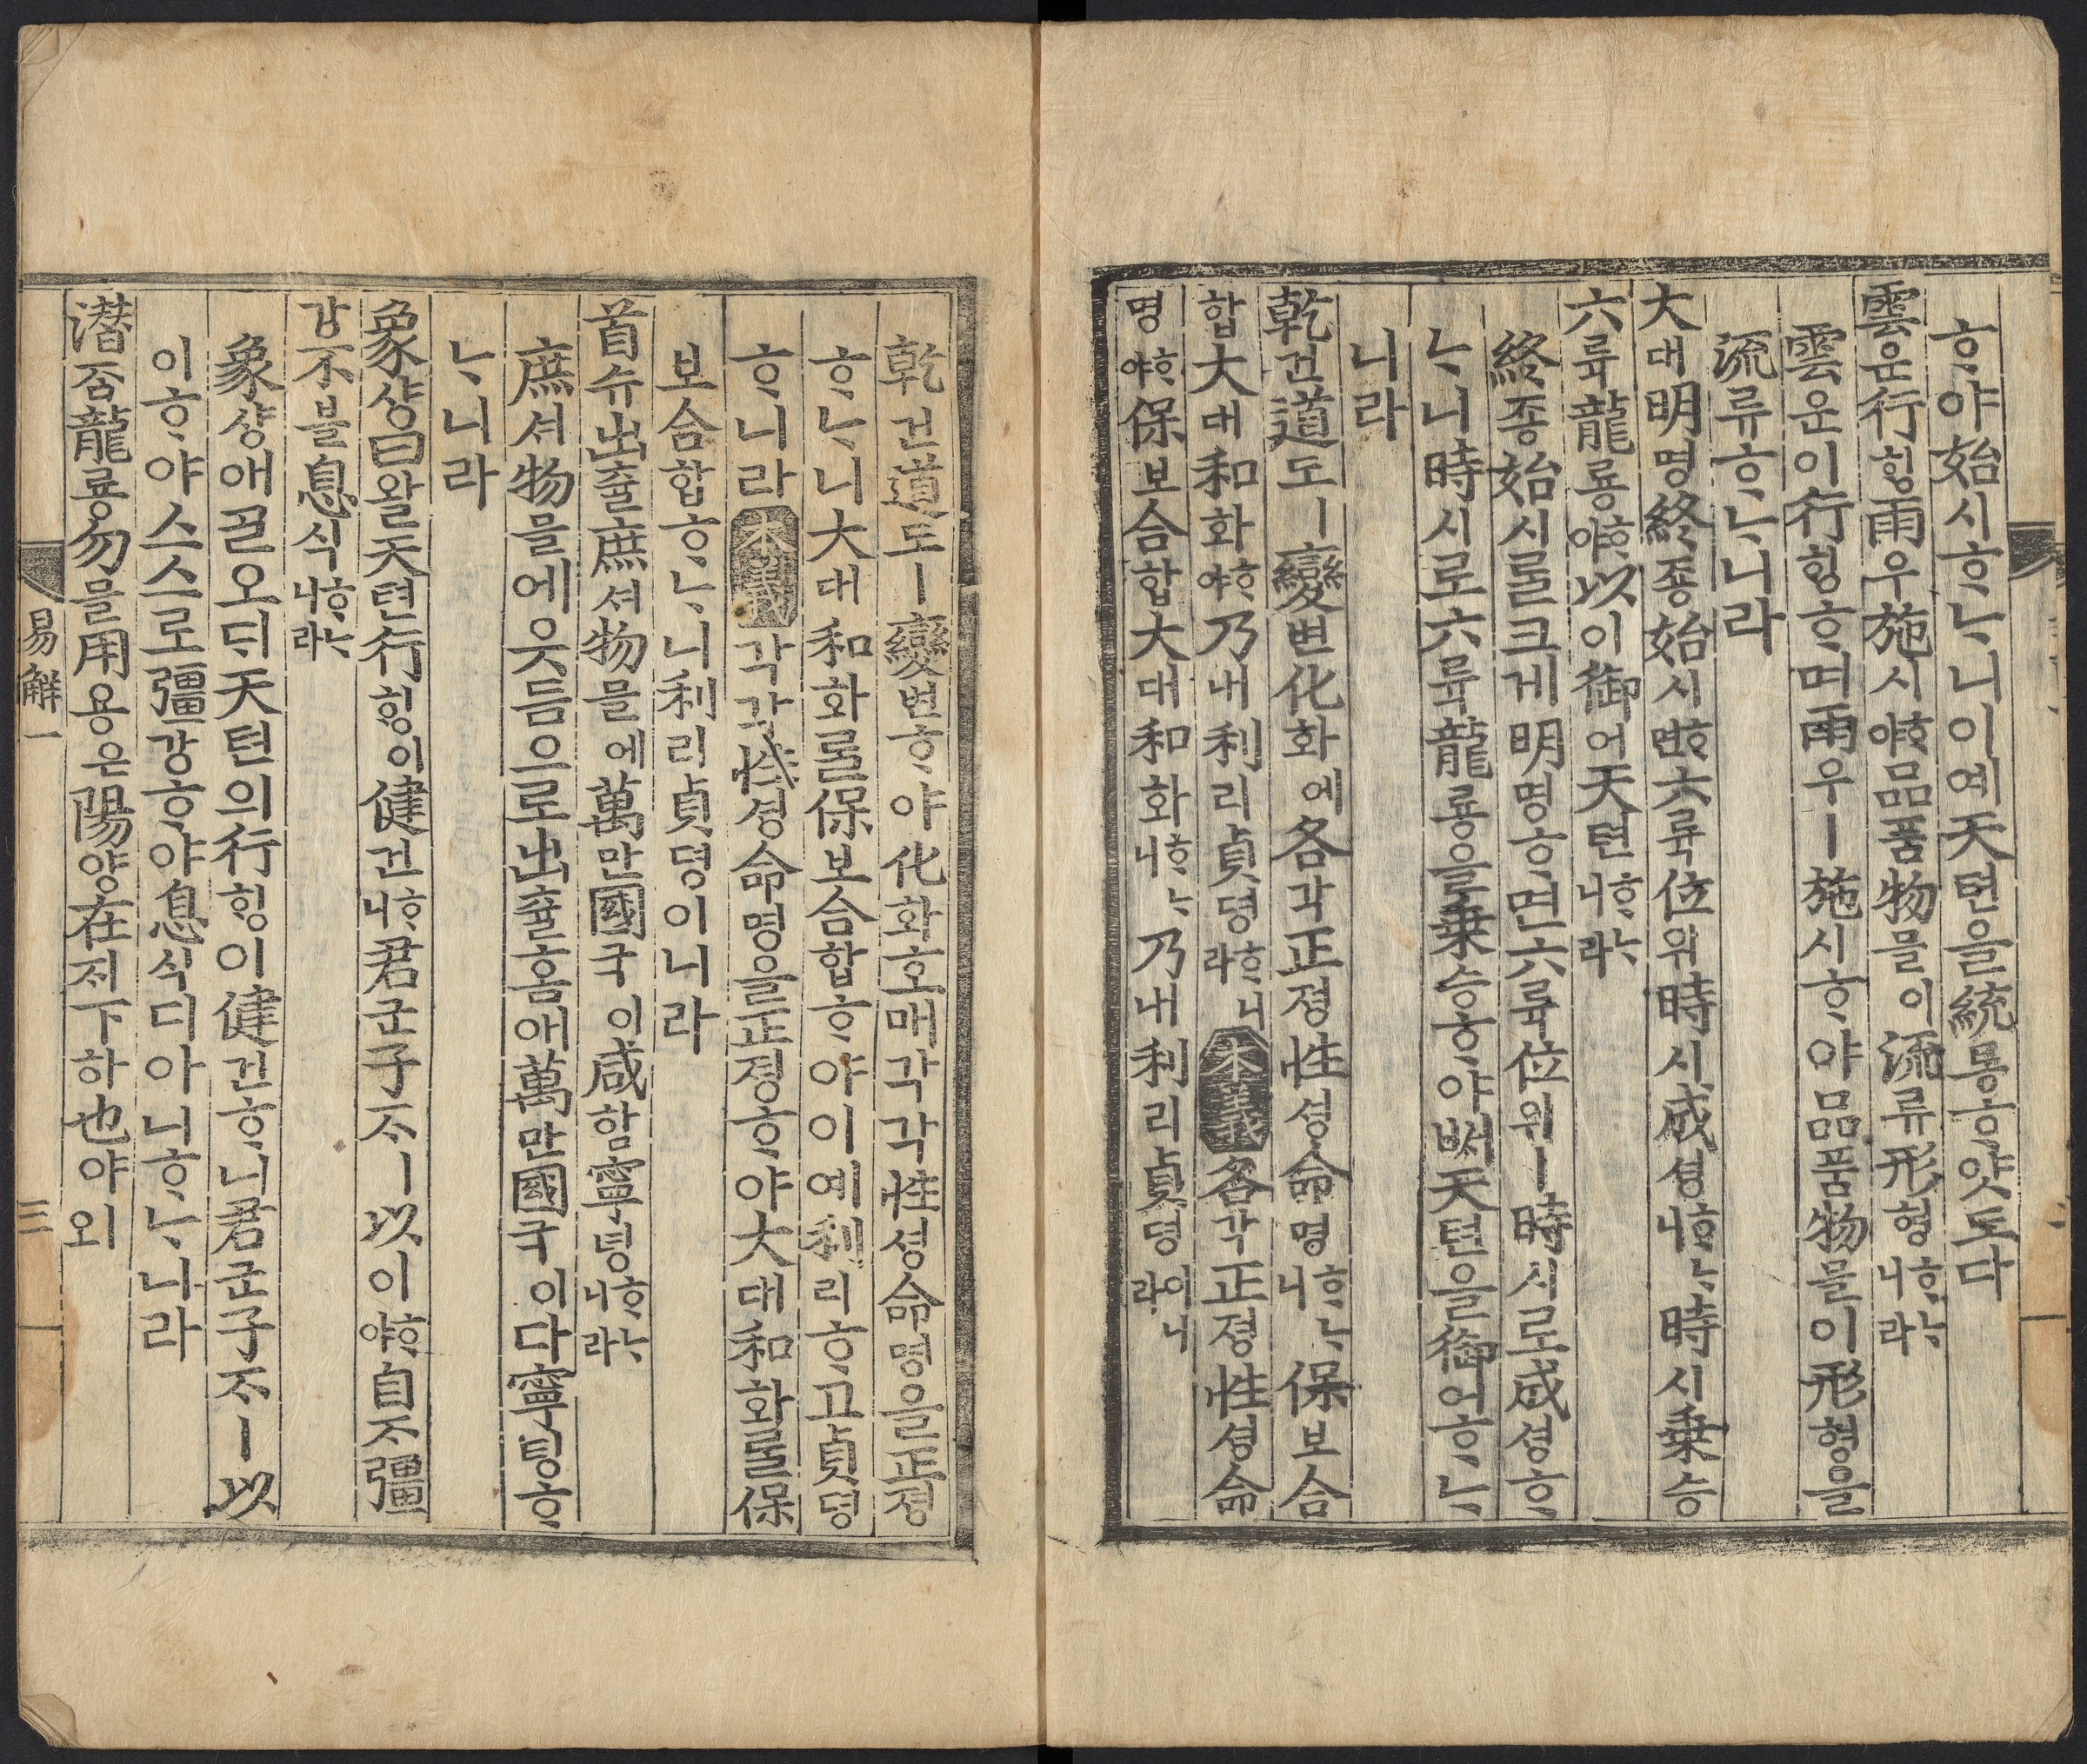 ᄒᆞ야始시ᄒᆞᄂᆞ니이예天텬을統통ᄒᆞ얏도다
雲운行ᄒᆡᆼ雨우施시ᄒᆞ야品품物믈이流류形형ᄒᆞᄂᆞ니라
雲운이行ᄒᆡᆼᄒᆞ며雨우ㅣ施시ᄒᆞ야品품物믈이形형을
流류ᄒᆞᄂᆞ니라
大대明명終죵始시ᄒᆞ면六륙位위時시成셩ᄒᆞᄂᆞ니時시乗승
六륙龍룡ᄒᆞ야以이御어天텬ᄒᆞᄂᆞ니라
終죵始시ᄅᆞᆯ크게明명ᄒᆞ면六륙位위ㅣ時시로成셩ᄒᆞ
ᄂᆞ니時시로六륙龍룡을乗승ᄒᆞ야ᄡᅥ天텬을御어ᄒᆞᄂᆞ
니라
乾건道도ㅣ變변化화에各각正졍性셩命명ᄒᆞᄂᆞ니保보合
합大대和화ᄒᆞ야乃내利리貞뎡ᄒᆞ니라本義各각正졍性셩命
명ᄒᆞ야保보合합大대和화ᄒᆞᄂᆞ니乃내利리貞뎡이니라
乾건道도ㅣ變변ᄒᆞ야化화호매각각性셩命명을正졍
ᄒᆞᄂᆞ니大대和화ᄅᆞᆯ保보合합ᄒᆞ야이예利리ᄒᆞ고貞뎡
ᄒᆞ니라本義각각性셩命명을正졍ᄒᆞ야大대和화ᄅᆞᆯ保
보合합ᄒᆞᄂᆞ니利리貞뎡이니라
首슈出츌庶셔物믈에萬만國국이咸함寧령ᄒᆞᄂᆞ니라
庶셔物믈에웃듬으로出츌홈애萬만國국이다寧령ᄒᆞ
ᄂᆞ니라
象샹曰왈天텬行ᄒᆡᆼ이健건ᄒᆞ니君군子ᄌᆞㅣ以이ᄒᆞ야自ᄌᆞ彊
강不블息식ᄒᆞᄂᆞ니라
象샹애ᄀᆞᆯ오ᄃᆡ天텬의行ᄒᆡᆼ이健건ᄒᆞ니君군子ᄌᆞㅣ以
이ᄒᆞ야스스로彊강ᄒᆞ야息식디아니ᄒᆞᄂᆞ니라
潜ᄌᆞᆷ龍룡勿믈用용은陽양在ᄌᆡ下하也야외
易解一
三